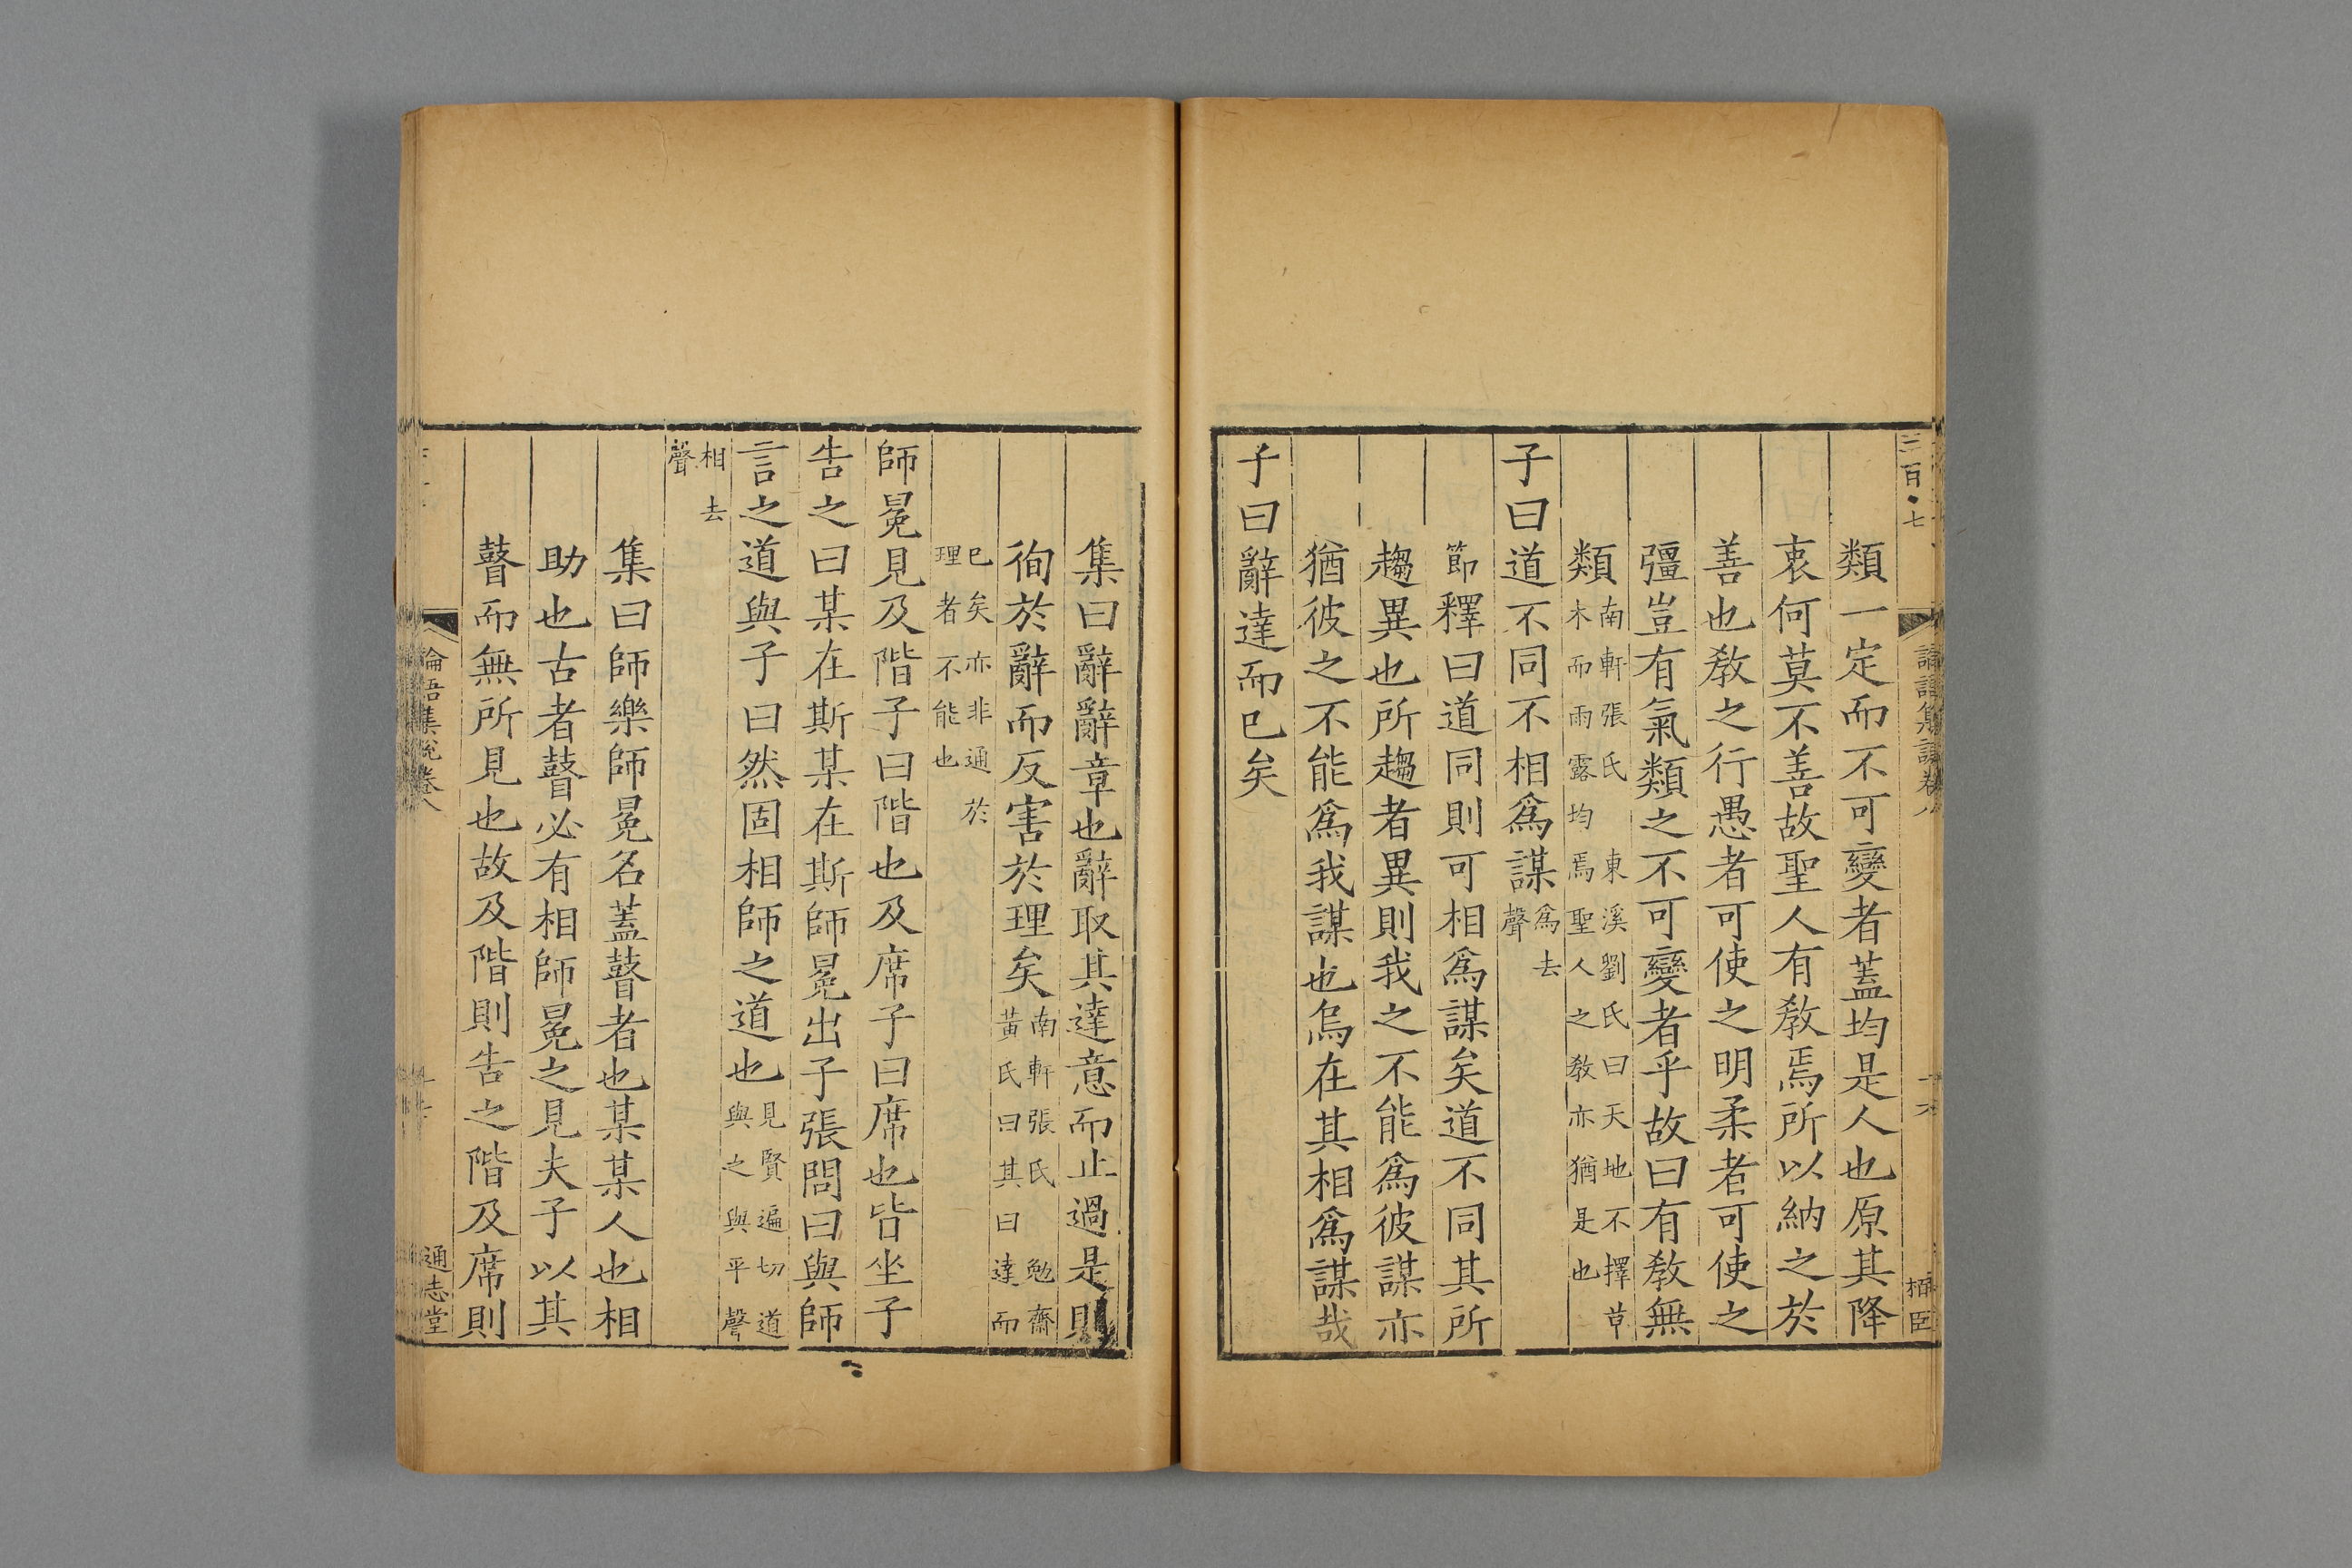 三百七
論語集說卷八
桓臣
類一定而不可變者蓋均是人也原其降
衷何莫不善故聖人有敎焉所以納之於
善也敎之行愚者可使之明柔者可使之
彊豈有氣類之不可變者乎故曰有敎無
類南軒張氏 東溪劉氏曰天地不擇草
木而雨露均焉聖人之敎亦猶是也
子曰道不同不相爲謀爲去
聲
節釋曰道同則可相爲謀矣道不同其所
趨異也所趨者異則我之不能爲彼謀亦
猶彼之不能爲我謀也烏在其相爲謀哉
子曰辭達而已矣
集曰辭辭章也辭取其達意而止過是則
徇於辭而反害於理矣南軒張氏 勉齋
黃氏曰其曰達而
已矣亦非通於
理者不能也
師冕見及階子曰階也及席子曰席也皆坐子
告之曰某在斯某在斯師冕出子張問曰與師
言之道與子曰然固相師之道也見賢遍切道
與之與平聲
相去
聲
集曰師樂師冕名蓋瞽者也某某人也相
助也古者瞽必有相師冕之見夫子以其
瞽而無所見也故及階則告之階及席則
論語集說卷八
通志堂